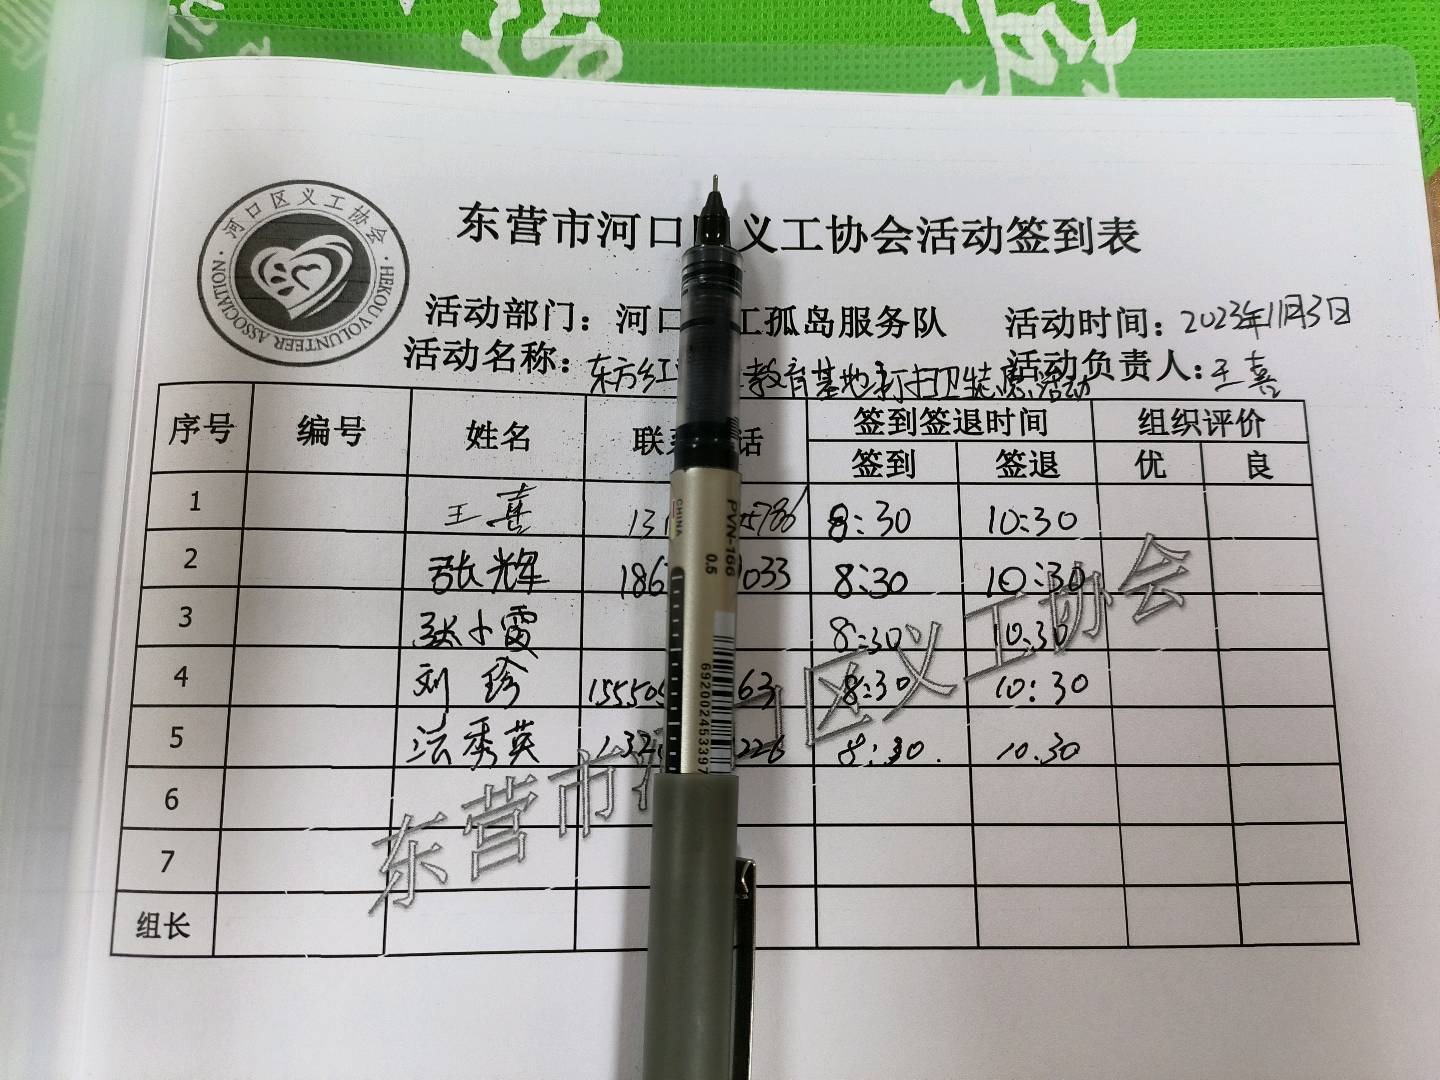 河口区义工协会
HEKOU VOLUNTEER ASSOCIATION
东营市河口 义工协会活动签到表
活动部门：河口 工孤岛服务队 活动时间：2023年11月3日
活动名称：东方红 教育基地打扫卫生志愿活动 活动负责人：王喜
序号 编号 姓名 联 话 签到签退时间 组织评价
签到 签退 优 良
1 王喜 13 5786 8:30 10:30
2 张辉 186 033 8:30 10:30
3 张小霞 8:30 10:30
4 刘珍 15550 63 8:30 10:30
5 秀英 132 226 8:30 10:30
6
7
组长
东营市 口区义工协会
CHINA
PVN-166
0.5
692002453397